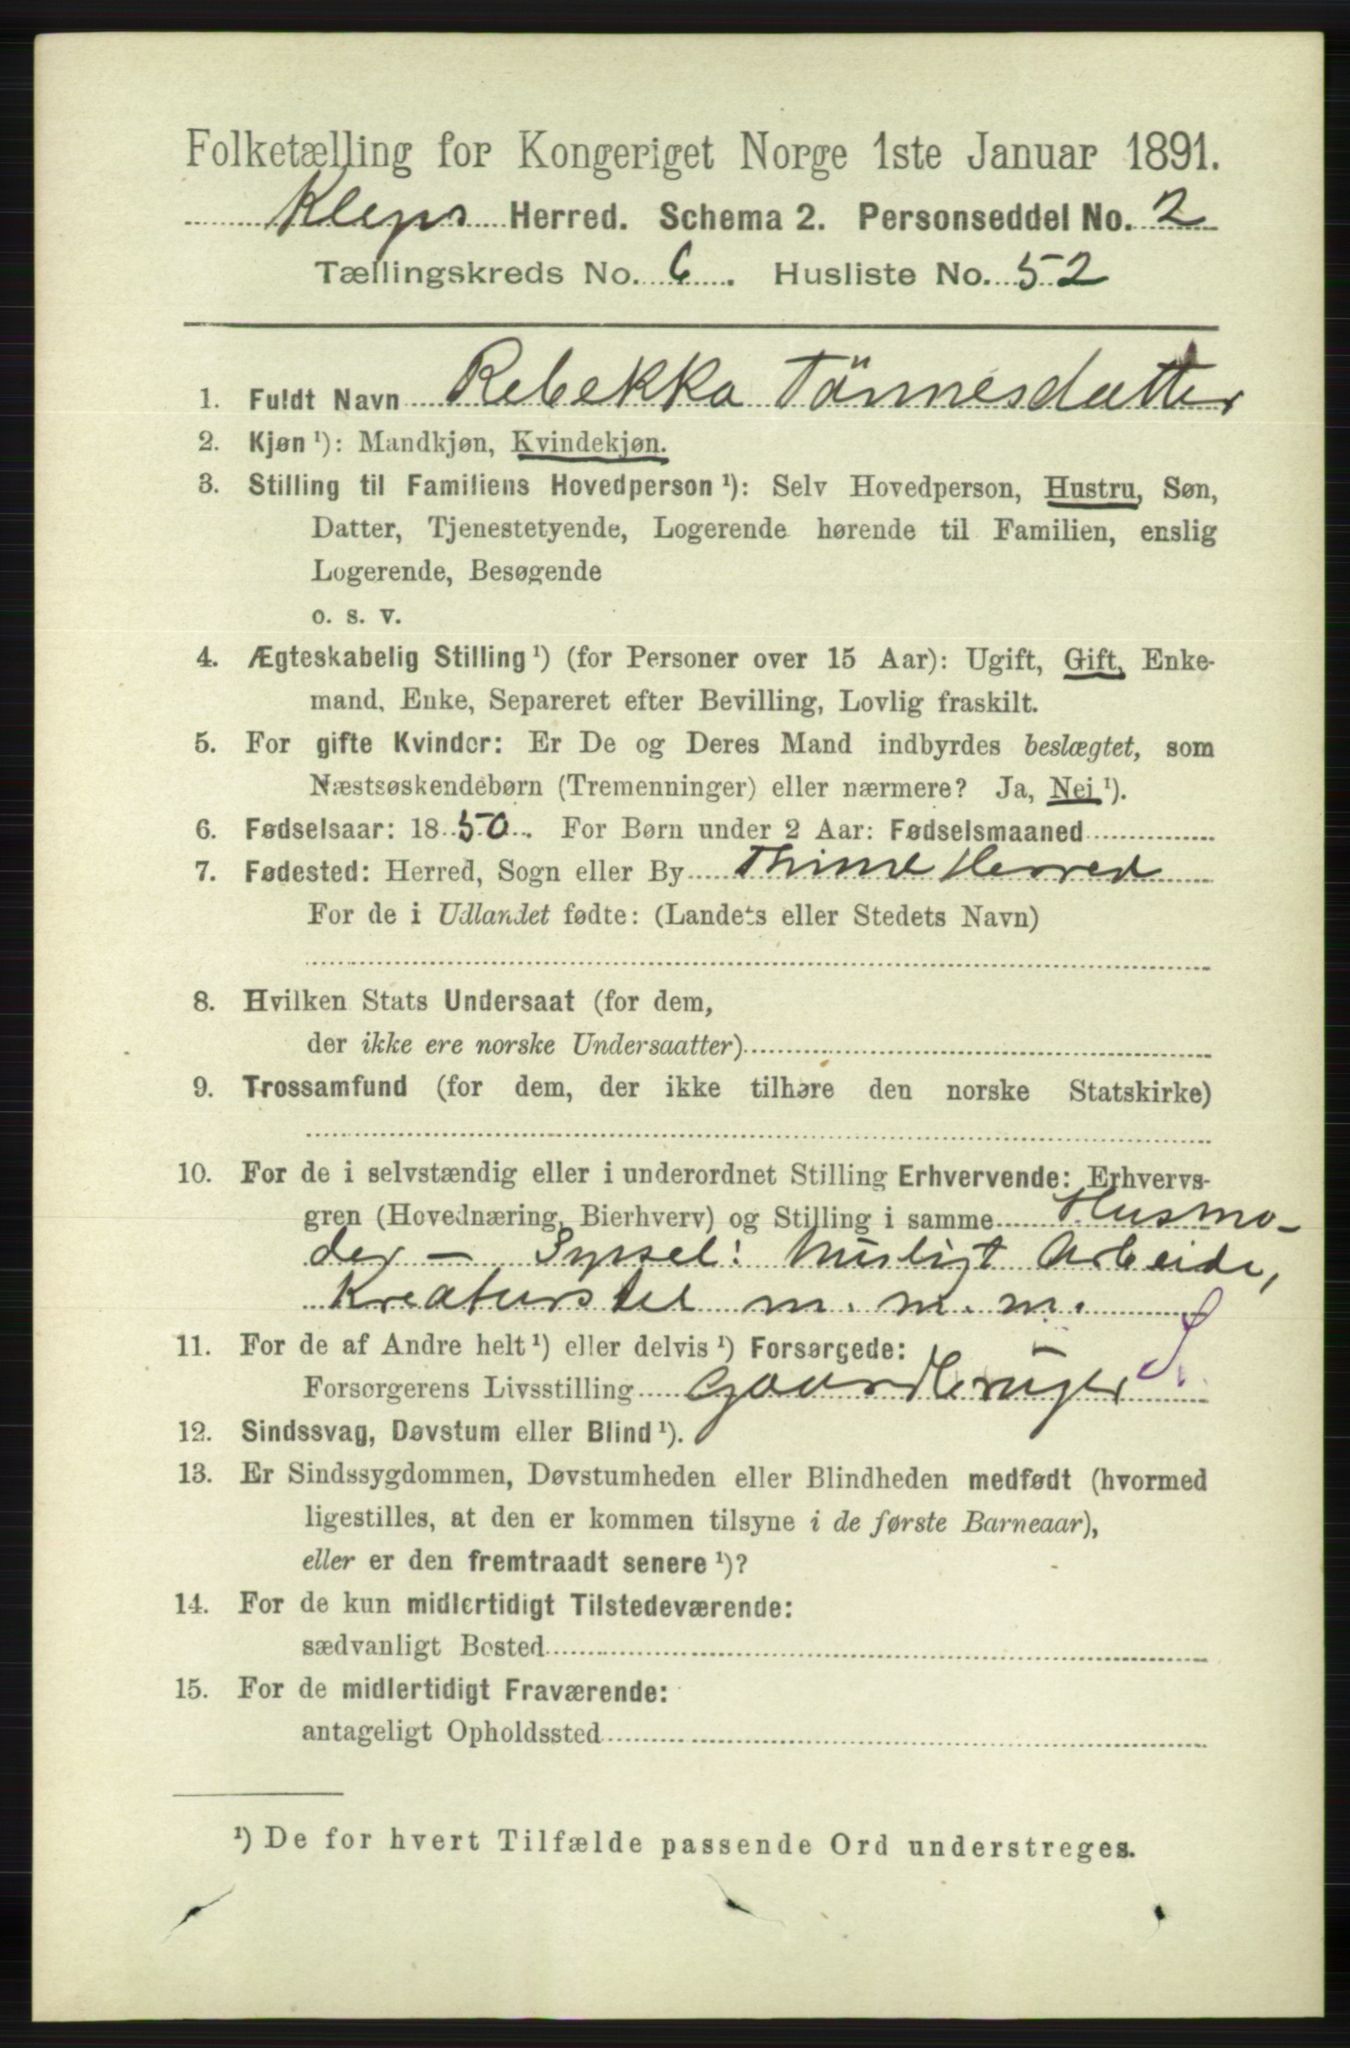 Folketælling for Kongeriget Norge 1ste Januar 1891.
Kleps Herred. Schema 2. Personseddel No. 2
Tællingskreds No. 6. Husliste No. 52
1. Fuldt Navn Rebekka Tönnesdatter
2. Kjøn ¹): Mandkjøn, Kvindekjøn.
3. Stilling til Familiens Hovedperson ¹): Selv Hovedperson, Hustru, Søn,
Datter, Tjenestetyende, Logerende hørende til Familien, enslig
Logerende, Besøgende
o. s. v.
4. Ægteskabelig Stilling ¹) (for Personer over 15 Aar): Ugift, Gift, Enke-
mand, Enke, Separeret efter Bevilling, Lovlig fraskilt.
5. For gifte Kvinder: Er De og Deres Mand indbyrdes beslægtet, som
Næstsøskendebørn (Tremenninger) eller nærmere? Ja, Nei ¹).
6. Fødselsaar: 1850. For Børn under 2 Aar: Fødselsmaaned
7. Fødested: Herred, Sogn eller By Thime Herred
For de i Udlandet fødte: (Landets eller Stedets Navn)
8. Hvilken Stats Undersaat (for dem,
der ikke ere norske Undersaatter)
9. Trossamfund (for dem, der ikke tilhøre den norske Statskirke)
10. For de i selvstændig eller i underordnet Stilling Erhvervende: Erhvervs-
gren (Hovednæring, Bierhverv) og Stilling i samme Husmo-
der – Syssel: husligt Arbeide,
Kreaturstel m. m. m.
11. For de af Andre helt ¹) eller delvis ¹) Forsørgede:
Forsorgerens Livsstilling Gaardbruger
12. Sindssvag, Døvstum eller Blind ¹).
13. Er Sindssygdommen, Døvstumheden eller Blindheden medfødt (hvormed
ligestilles, at den er kommen tilsyne i de første Barneaar),
eller er den fremtraadt senere ¹)?
14. For de kun midlertidigt Tilstedeværende:
sædvanligt Bosted
15. For de midlertidigt Fraværende:
antageligt Opholdssted
¹) De for hvert Tilfælde passende Ord understreges.